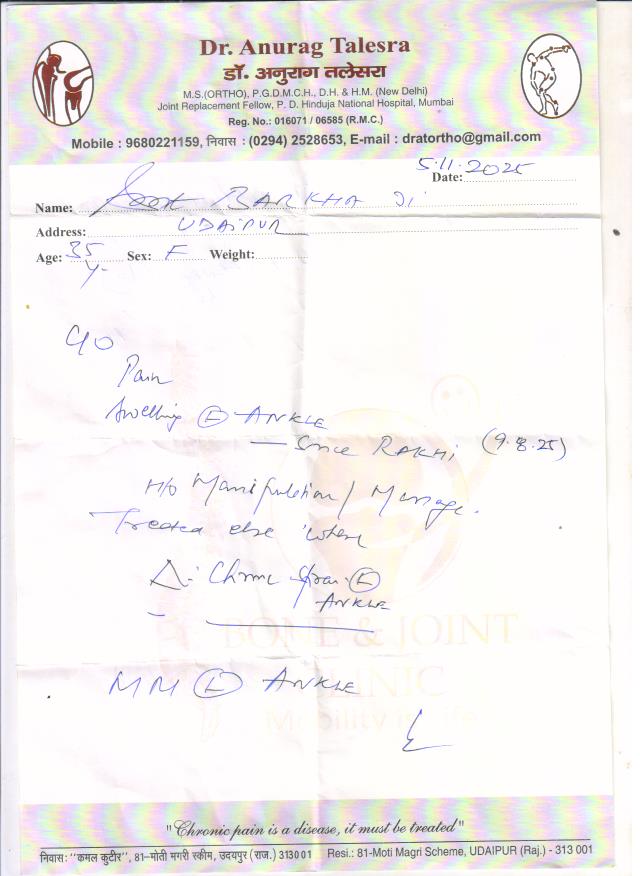 Dr. Anurag Talesra
डॉ. अनुराग तलेसरा
M.S.(ORTHO), P.G.D.M.C.H., D.H. & H.M. (New Delhi)
Joint Replacement Fellow, P. D. Hinduja National Hospital, Mumbai
Reg. No.: 016071 / 06585 (R.M.C.)
Mobile : 9680221159, निवास : (0294) 2528653, E-mail : dratortho@gmail.com
Date: 5.11.2025
Name: BARKHA Ji
Address: UDAIPUR
Age: 35 y. Sex: F Weight:
C/O
Pain
Swelling Ⓛ ANKLE
— Since RAKHI (9.8.25)
H/O Manipulation / Massage.
Treated else where
Δ:- Chronic Ⓛ
ANKLE
BONE & JOINT
CLINIC
Mobility is Life
Ⓛ ANKLE
"Chronic pain is a disease, it must be treated"
निवास: "कमल कुटीर", 81-मोती मगरी स्कीम, उदयपुर (राज.) 313001 Resi.: 81-Moti Magri Scheme, UDAIPUR (Raj.) - 313 001